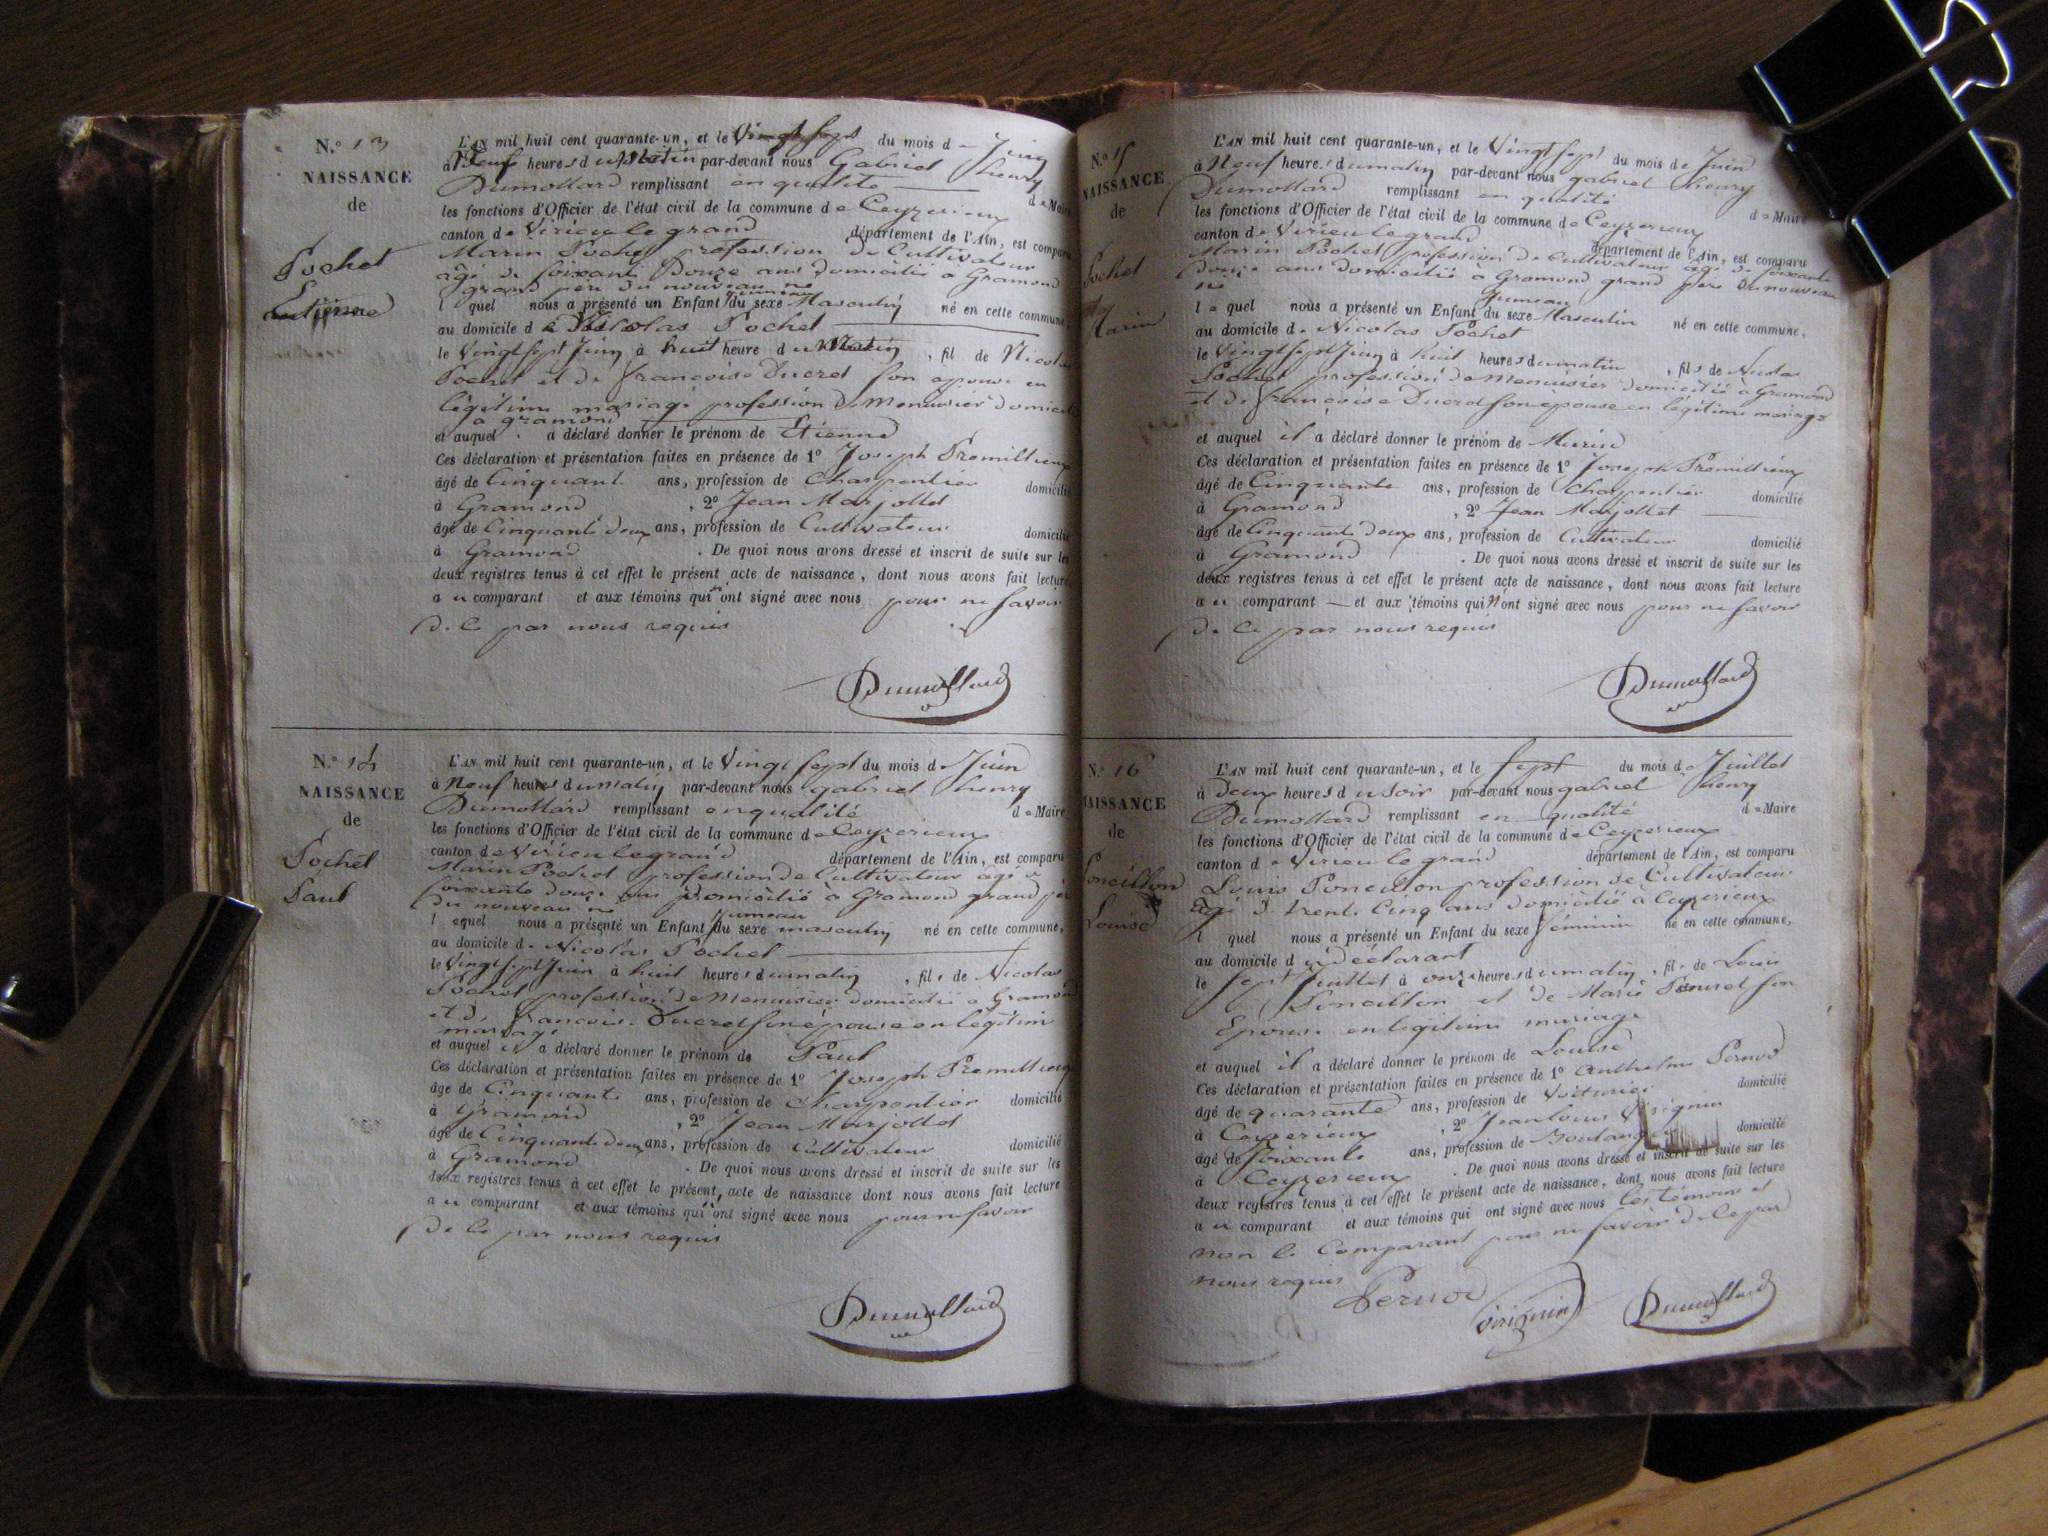 N.º 13
NAISSANCE
de
Pochet
Etienne
L'AN mil huit cent quarante-un, et le Vingt sept du mois de Juin
à Neuf heures du Matin par-devant nous Gabriel henry
Dumollard remplissant en qualité de Maire
les fonctions d'Officier de l'état civil de la commune de Ceyzerieux
canton de Virieu le grand département de l'Ain, est comparu
Marin Pochet profession de Cultivateur
âgé de soixante Douze ans domicilié à Gramond
grand père du nouveau né
l quel nous a présenté un Enfant jumeau du sexe Masculin né en cette commune,
au domicile de Nicolas Pochet
le Vingt sept Juin à huit heure du Matin, fil de Nicolas
Pochet et de françoise Ducret son epouse en
légitime mariage profession de menuisier domicilié
à Gramond
et auquel a déclaré donner le prénom de Etienne
Ces déclaration et présentation faites en présence de 1º Joseph Premillieux
âgé de Cinquante ans, profession de Charpentier domicilié
à Gramond, 2º Jean Marjollet
âgé de Cinquante deux ans, profession de Cultivateur domicilié
à Gramond. De quoi nous avons dressé et inscrit de suite sur les
deux registres tenus à cet effet le présent acte de naissance, dont nous avons fait lecture
au comparant et aux témoins qui n'ont signé avec nous pour ne savoir
de ce par nous requis
Dumollard
N.º 14
NAISSANCE
de
Pochet
Paul
L'AN mil huit cent quarante-un, et le Vingt sept du mois de Juin
à Neuf heures du matin par-devant nous gabriel henry
Dumollard remplissant en qualité de Maire
les fonctions d'Officier de l'état civil de la commune de Ceyzerieux
canton de Virieu le grand département de l'Ain, est comparu
Marin Pochet profession de Cultivateur agé de
soixante douze ans domicilié à Gramond grand père
du nouveau né
lequel nous a présenté un Enfant jumeau du sexe masculin né en cette commune,
au domicile de Nicolas Pochet
le Vingt sept Juin à huit heures du matin, fils de Nicolas
Pochet profession de Menuisier domicilié à Gramond
et de françoise Ducret son épouse en légitime
mariage
et auquel il a déclaré donner le prénom de Paul
Ces déclaration et présentation faites en présence de 1º Joseph Premillieux
âgé de Cinquante ans, profession de Charpentier domicilié
à Gramond, 2º Jean Marjollet
âgé de Cinquante deux ans, profession de Cultivateur domicilié
à Gramond. De quoi nous avons dressé et inscrit de suite sur les
deux registres tenus à cet effet le présent acte de naissance dont nous avons fait lecture
au comparant et aux témoins qui n'ont signé avec nous pour ne savoir
de ce par nous requis
Dumollard
N.º 15
NAISSANCE
de
Pochet
Marin
L'AN mil huit cent quarante-un, et le Vingt sept du mois de Juin
à Neuf heures du matin par-devant nous gabriel henry
Dumollard remplissant en qualité de Maire
les fonctions d'Officier de l'état civil de la commune de Ceyzerieux
canton de Virieu le grand département de l'Ain, est comparu
Marin Pochet profession de Cultivateur agé de soixante
Douze ans domicilié à Gramond grand père du nouveau
né
lequel nous a présenté un Enfant jumeau du sexe Masculin né en cette commune,
au domicile de Nicolas Pochet
le Vingt sept Juin à huit heures du matin, fils de Nicolas
Pochet profession de Menuisier domicilié à Gramond
et de françoise Ducret son epouse en légitime mariage
et auquel il a déclaré donner le prénom de Marin
Ces déclaration et présentation faites en présence de 1º Joseph Premillieux
âgé de Cinquante ans, profession de Charpentier domicilié
à Gramond, 2º Jean Marjollet
âgé de Cinquante deux ans, profession de Cultivateur domicilié
à Gramond. De quoi nous avons dressé et inscrit de suite sur les
deux registres tenus à cet effet le présent acte de naissance, dont nous avons fait lecture
au comparant et aux témoins qui n'ont signé avec nous pour ne savoir
de ce par nous requis
Dumollard
N.º 16
NAISSANCE
de
Poncillon
Louise
L'AN mil huit cent quarante-un, et le sept du mois de Juillet
à Deux heures du soir par-devant nous gabriel henry
Dumollard remplissant en qualité de Maire
les fonctions d'Officier de l'état civil de la commune de Ceyzerieux
canton de Virieu le grand département de l'Ain, est comparu
Louis Poncillon profession de Cultivateur
âgé de trente Cinq ans domicilié à Ceyzerieux
l quel nous a présenté un Enfant du sexe féminin né en cette commune,
au domicile du déclarant
le sept Juillet à onze heures du matin, fil de Louis
Poncillon et de Marie son
Epouse en légitime mariage
et auquel il a déclaré donner le prénom de Louise
Ces déclaration et présentation faites en présence de 1º Anthelme Pernod
âgé de quarante ans, profession de Voiturier domicilié
à Ceyzerieux, 2º Jean Louis Virignin
âgé de soixante ans, profession de Boulanger domicilié
à Ceyzerieux. De quoi nous avons dressé et inscrit de suite sur les
deux registres tenus à cet effet le présent acte de naissance, dont nous avons fait lecture
au comparant et aux témoins qui ont signé avec nous les témoins et
non le Comparant pour ne savoir de ce par
nous requis
Pernod
Virignin
Dumollard